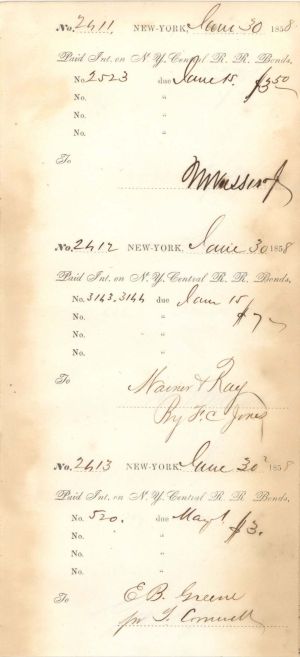 No. 2411 NEW-YORK, June 30 1858
Paid Int. on N. Y. Central R. R. Bonds.
No. 2523 due June 15. $3.50
No. "
No. "
No. "
To
No. 2412 NEW-YORK, June 30 1858
Paid Int. on N. Y. Central R. R. Bonds.
No. 3143.3144 due June 15 $7
No. "
No. "
No. "
To & Ray
By F. C. Jones
No. 2413 NEW-YORK, June 30 1858
Paid Int. on N. Y. Central R. R. Bonds.
No. 520. due May 1 $3.
No. "
No. "
No. "
To E. B. Greene
pr T. Cornwell